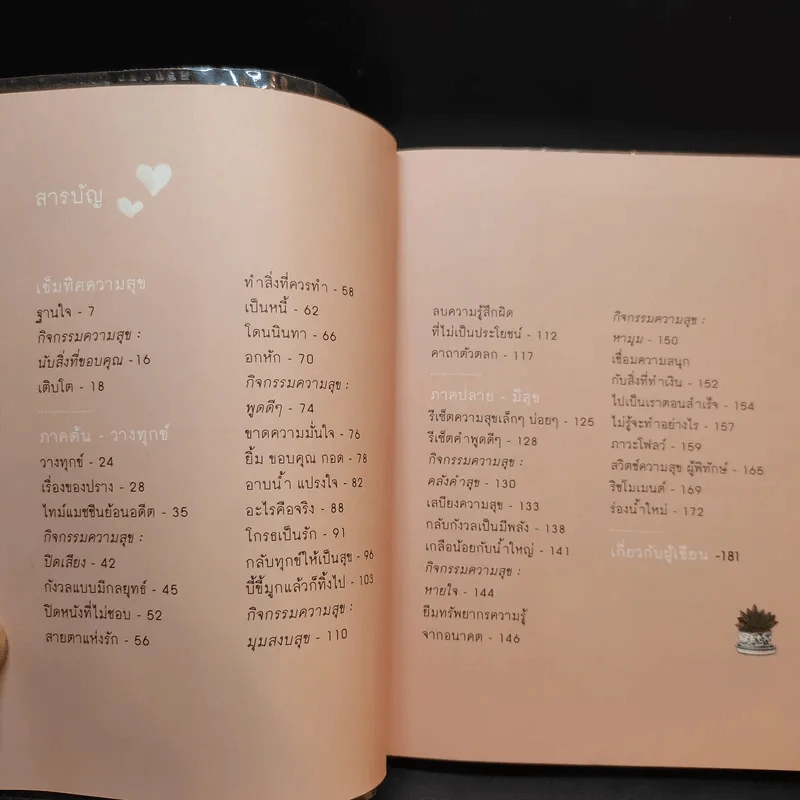 สารบัญ
เข็มทิศความสุข
ฐานใจ - 7
กิจกรรมความสุข :
นับสิ่งที่ขอบคุณ -16
เติบโต - 18
ภาคต้น - วางทุกข์
วางทุกข์ - 24
เรื่องของปราง - 28
ไทม์แมชชีนย้อนอดีต - 35
กิจกรรมความสุข :
ปิดเสียง - 42
กังวลแบบมีกลยุทธ์ - 45
ปิดหนังที่ไม่ชอบ - 52
สายตาแห่งรัก - 56
ทำสิ่งที่ควรทำ - 58
เป็นหนี้ - 62
โดนนินทา - 66
อกหัก - 70
กิจกรรมความสุข :
พูดดีๆ - 74
ขาดความมั่นใจ - 76
ยิ้ม ขอบคุณ กอด - 78
อาบน้ำ แปรงใจ - 82
อะไรคือจริง - 88
โกรธเป็นรัก - 91
กลับทุกข์ให้เป็นสุข - 96
บี้ขี้มูกแล้วก็ทิ้งไป - 103
กิจกรรมความสุข :
มุมสงบสุข - 110
ลบความรู้สึกผิด
ที่ไม่เป็นประโยชน์ - 112
คาถาตัวตลก - 117
ภาคปลาย - มีสุข
รีเซ็ตความสุขเล็กๆ บ่อยๆ - 125
รีเซ็ตคำพูดดีๆ - 128
กิจกรรมความสุข :
คลังคำสุข - 130
เสบียงความสุข - 133
กลับกังวลเป็นมีพลัง - 138
เกลือน้อยกับน้ำใหญ่ - 141
กิจกรรมความสุข :
หายใจ - 144
ยืมทรัพยากรความรู้
จากอนาคต - 146
กิจกรรมความสุข :
หามุม - 150
เชื่อมความสนุก
กับสิ่งที่ทำเงิน - 152
ไปเป็นเราตอนสำเร็จ - 154
ไม่รู้จะทำอย่างไร - 157
ภาวะโฟลว์ - 159
สวิตช์ความสุข ผู้พิทักษ์ - 165
ริชโมเมนต์ - 169
ร่องน้ำใหม่ - 172
เกี่ยวกับผู้เขียน -181